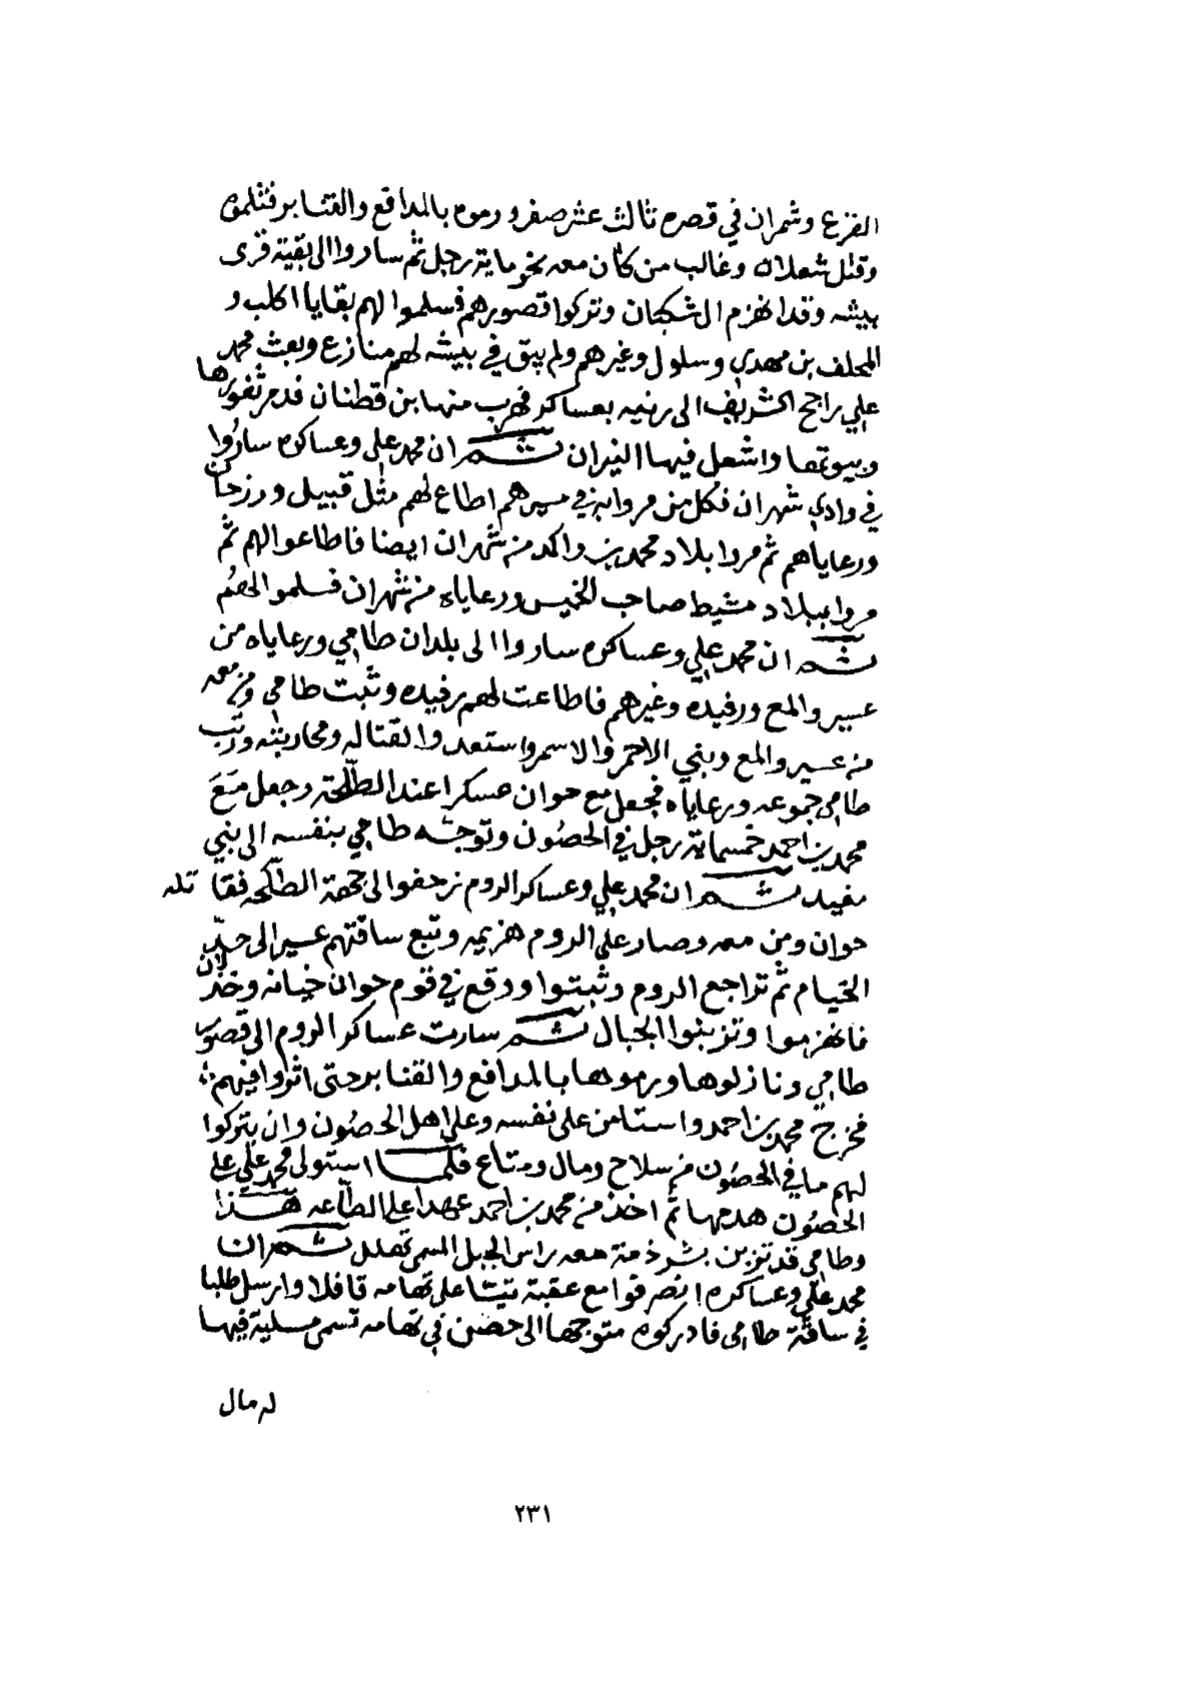 الفزع وشمران في قصره ثالث عشر صفر ورموه بالمدافع والقنابر فثلموه
وقتل شعلان وغالب من كان معه نحو ماية رجل ثم ساروا الى بقية قرى
بيشه وقد انهزم ال شكبان وتركوا قصورهم فسلموا لهم بقايا اكلب و
المحلف بن مهدي وسلول وغيرهم ولم يبق في بيشه لهم منازع وبعث محمد
علي راجح الشريف الى رنيه بعساكر فهرب منها بن قطنان فدمر ثغورها
وبيوتها واشعل فيها النيران ثم ان محمد علي وعساكره ساروا
في وادي شهران فكل من مروا به في مسيرهم اطاع لهم مثل قبيل ورزحان
ورعاياهم ثم مروا بلاد محمد بن واكد من شهران ايضا فاطاعوا لهم ثم
مروا ببلاد مشيط صاحب الخميس ورعاياه من شهران فسلموا لهم
ثم ان محمد علي وعساكره ساروا الى بلدان طامي ورعاياه من
عسير والمع ورفيده وغيرهم فاطاعت لهم رفيده وثبت طامي ومن معه
من عسير والمع وبني الاحمر والاسمر واستعدوا لقتاله ومحاربته ورتب
طامي جموعه ورعاياه فجعل مع حوان عسكرا عند الطلحة وجعل مع
محمد بن احمد خمسماية رجل في الحصون وتوجه طامي بنفسه الى بني
مغيد ثم ان محمد علي وعساكر الروم زحفوا لى جهة الطلحه فقاتله
حوان ومن معه وصار على الروم هزيمه وتبع ساقتهم عسير الى حد
الخيام ثم تراجع الروم وثبتوا ووقع في قوم حوان خيانه وخذلان
فانهزموا وتزبنوا الجبال ثم سارت عساكر الروم الى قصور
طامي ونازلوها ورموها بالمدافع والقنابر حتى اثروا فيهم
فخرج محمد بن احمد واستامن على نفسه وعلى اهل الحصون وان يتركوا
لهم ما في الحصون من سلاح ومال ومتاع فلما استولى محمد علي على
الحصون هدمها ثم اخذ من محمد بن احمد عهدا على الطاعه هذا
وطامي قد تزبن بشرذمة معه راس الجبل المسمى تهلل ثم ان
محمد علي وعساكره انصرفوا مع عقبة تيتا على تهامه قافلا وارسل طلبا
في ساقة طامي فادركوه متوجها الى حصن في تهامه تسمى مسلية فيها
له مال
٢٣١